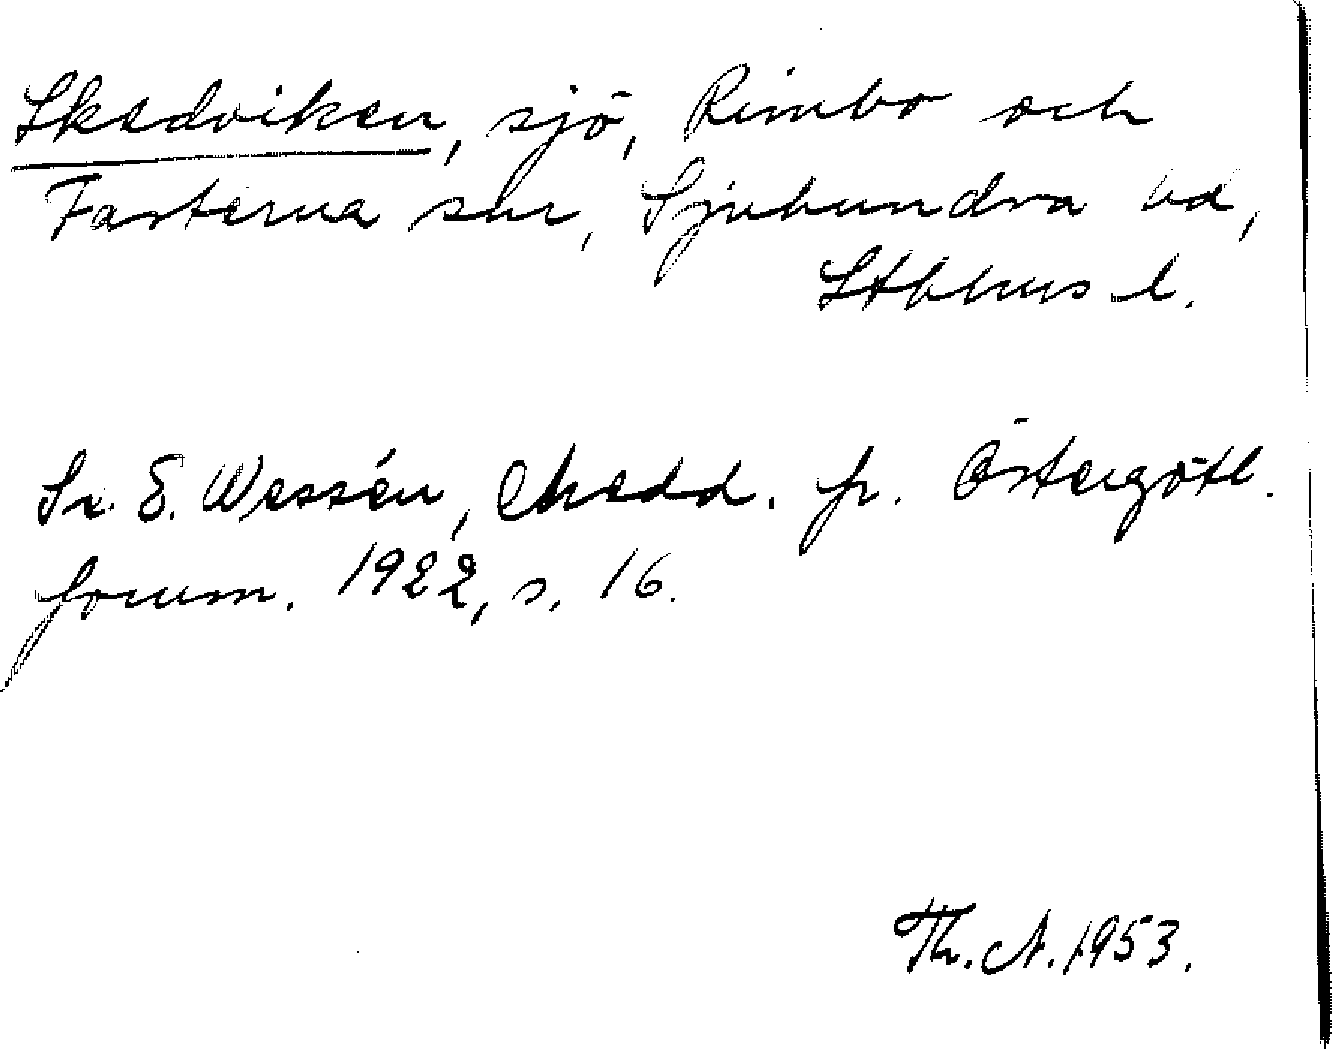 Skedviken, sjö, Rimbo och
Fasterna snr, Sjuhundra hd,
Sthlms l.
Se E. Wessén, Medd. fr. Östergötl.
fornm. 1922, s. 16.
Th. A. 1953.